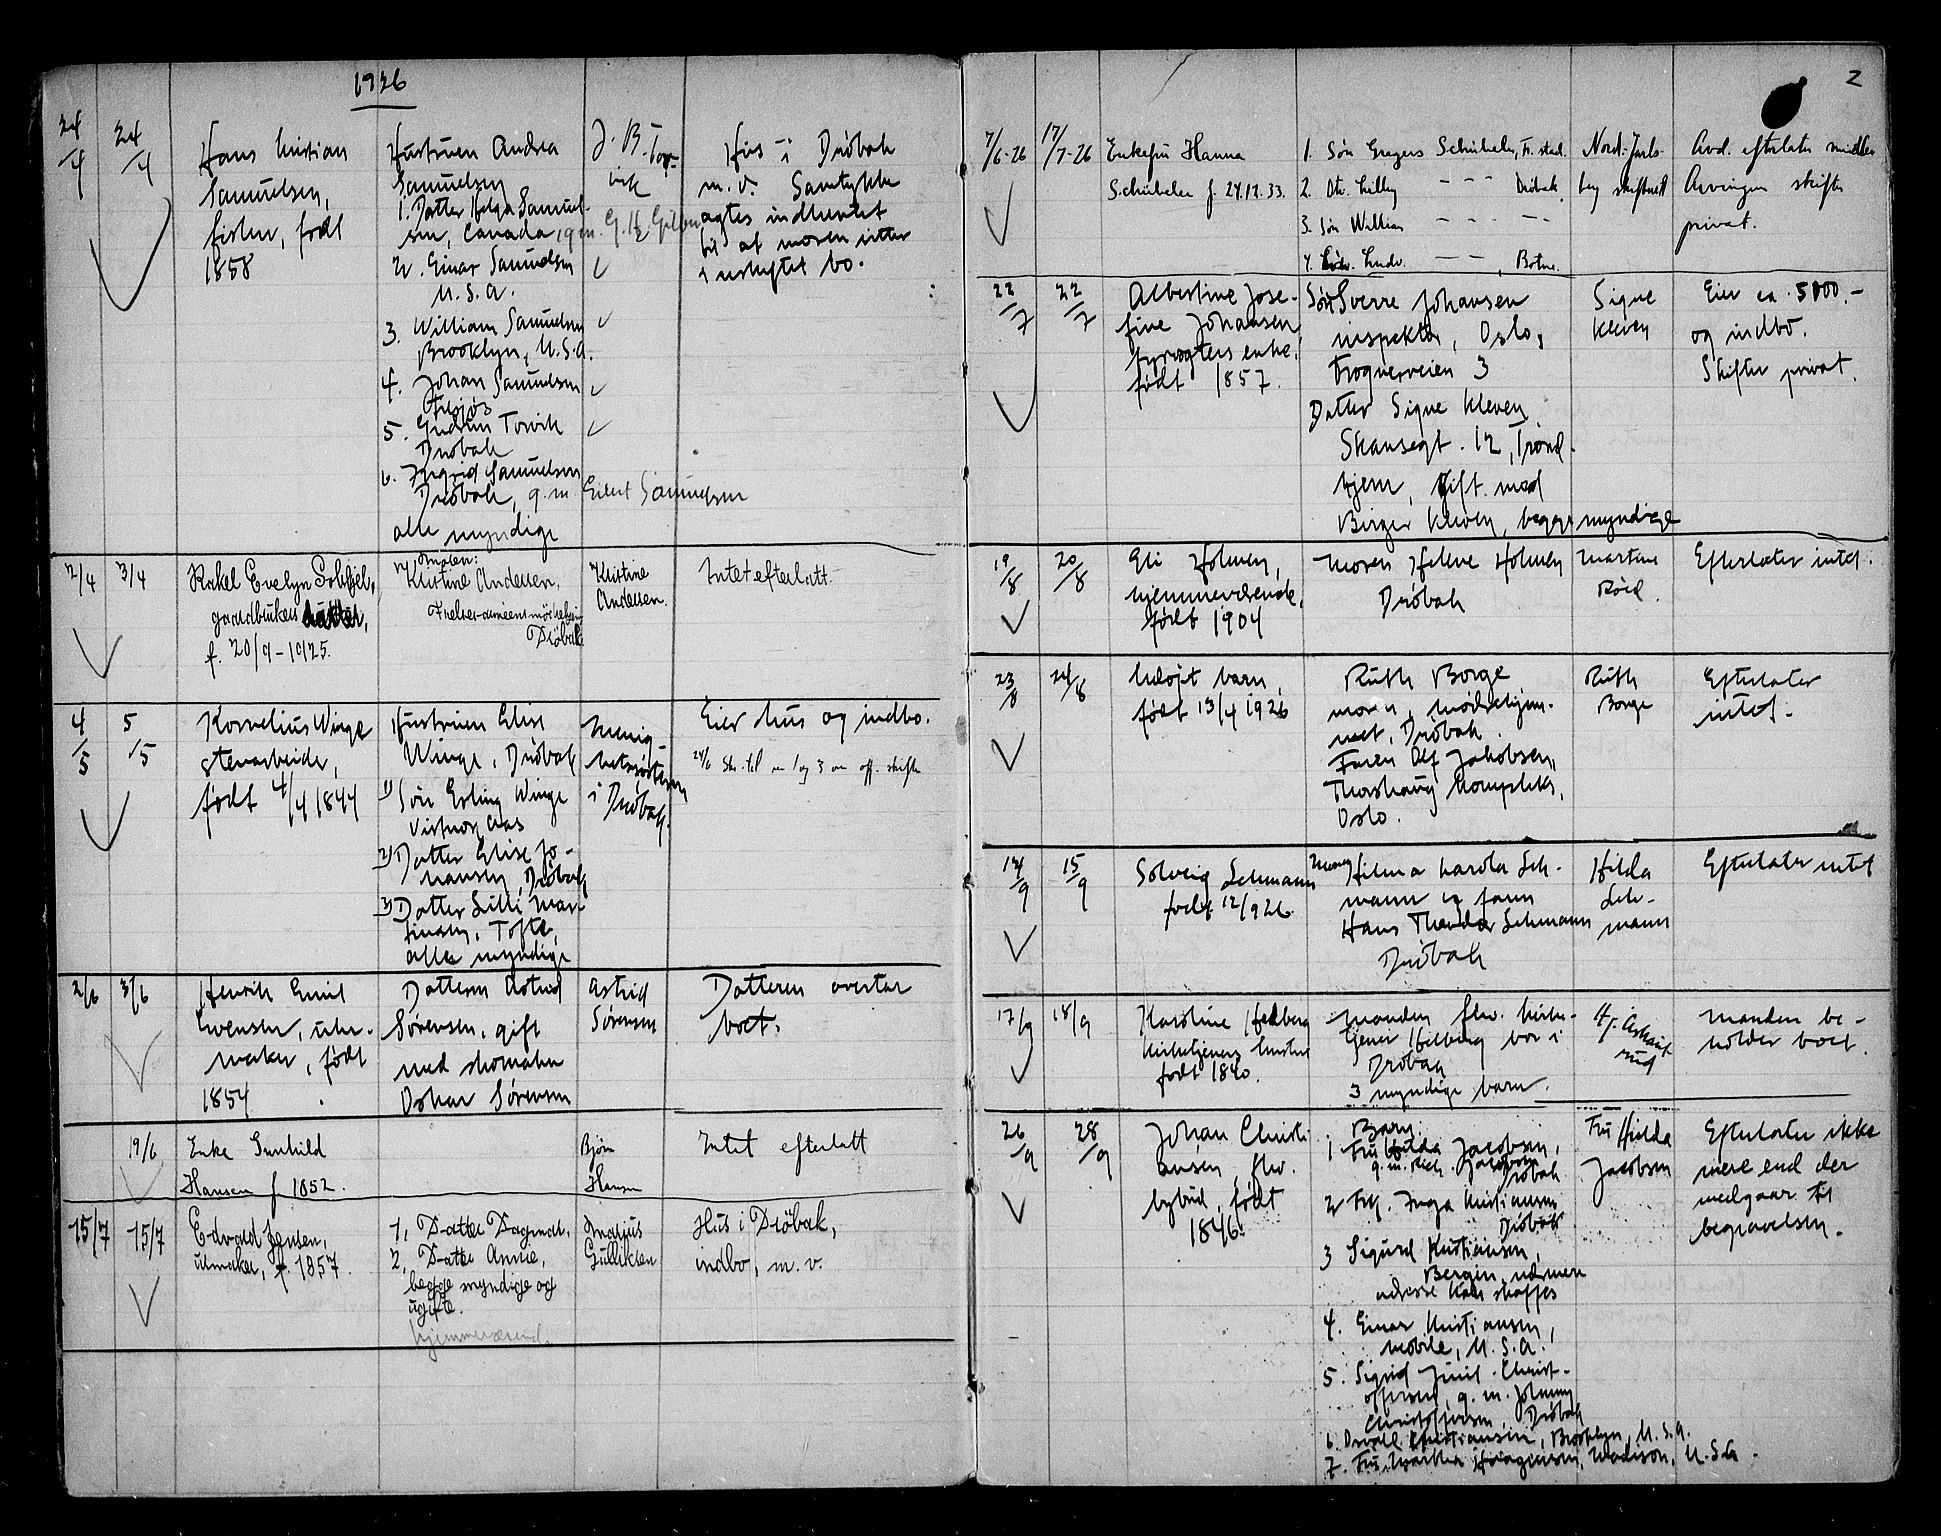 1926
24/4 24/4 Hans Kristian
Samuelsen,
fisker, født
1858
Hustruen Andrea
Samuelsen
1. Datter Helga Samuel-
sen, Canada, g.m. G. H.
2. Einar Samuelsen
U.S.A.
3. William Samuelsen
Brooklyn, U.S.A.
4. Johan Samuelsen
5. Gudrun Torvik
Drøbak
6. Ingrid Samuelsen
Drøbak, g.m. Eilert Samuelsen
alle myndige
J. B. Tor-
vik
Hus i Drøbak
m.v. Samtykke
agtes indhentet
til at moren sitter
i uskiftet bo.
2/4 3/4 Rakel Evelyn
gaardbrukers datter,
f. 20/9-1925.
Kristine Andersen,
Drøbak
Kristine
Andersen.
Intet efterlatt.
4/5 5/5 Kornelius Winge
stenarbeider,
født 4/4 1844
Hustruen Elise
Winge, Drøbak
1) Søn Erling Winge
2) Datter Elise Jo-
hansen, Drøbak
3) Datter Lilli Mar-
tinsen, Tofte,
alle myndige
Menig-
hetssøsteren
i Drøbak.
Eier hus og indbo.
2/6 3/6 Henrik Emil
Evensen, uhr-
maker, født
1854
Datteren Astrid
Sørensen, gift
med skomaker
Oskar Sørensen
Astrid
Sørensen
Datteren overtar
boet.
19/6 Enke Gunhild
Hansen f 1852.
Bjørn
Hansen
Intet efterlatt
15/7 15/7 Edvard Jensen,
urmaker, f. 1857.
1, Datter Dagmar,
2, Datter Annie,
begge myndige og
ugifte.
hjemmeværend.
Marius
Gulliksen
Hus i Drøbak,
indbo, m.v.
2
7/6-26 17/7-26 Enkefru Hanna
Schübeler f. 24.12.33.
1. Søn Gregers Schübeler, Fr.stad.
2. Dtr. Lilley - - - Drøbak.
3. Søn William - - - - -
4. Ludv. - - , Botne.
Nord-Jarls-
berg skifterett
Avd. efterlater midler
Arvingene skifter
privat.
22/7 22/7 Albertine Jose-
fine Johansen
fyrvogters enke,
født 1857.
Søn Sverre Johansen
inspektør, Oslo,
Frognerveien 3
Datter Signe Kleven
Skansegt. 12, Trond-
hjem, gift med
Birger Kleven, begge myndige
Signe
Kleven
Eier ca. 5000,-
og indbo.
Skifter privat.
19/8 20/8 Eli Holmen,
hjemmeværende,
født 1904
Moren Helene Holmen
Drøbak
Martine
Röed.
Efterlater intet.
23/8 24/8 Udøpt barn,
født 13/4 1926
Ruth Borge
moren, Mødrehjem-
met, Drøbak.
Faren Alf Jakobsen,
Thorshaug kompleks,
Oslo.
Ruth
Borge
Efterlater
intet.
14/9 15/9 Solveig Lehmann
født 12/9 26.
Moren Hilma Karola Leh-
mann og faren
Hans Theodor Lehmann
Drøbak
Hilda
Leh-
mann
Efterlater intet
17/9 18/9 Karoline Helberg
kirketjeners hustru
født 1840.
Manden fhv. kirke-
tjener Helberg bor i
Drøbak
3 myndige barn.
Manden be-
holder boet.
26/9 28/9 Johan Christi-
ansen, fhv.
bybud, født
1846.
Barn:
1 Fru Hilda Jacobsen,
g.m. Rich. Jacobsen
Drøbak
2 Frk. Inga Kristiansen
Drøbak
3 Sigurd Kristiansen,
Bergen, nærmere
adresse kan skaffes
4. Einar Kristiansen,
Mobile, U.S.A.
5. Sigrid Juul Christ-
offersen, g.m. Johnny
Christoffersen, Drøbak
6. Osvald Christiansen, Brooklyn, U.S.A.
7. Fru Martha Haagensen, Madison, U.S.A.
Fru Hilda
Jacobsen
Efterlater ikke
mere end der
medgaar til
begravelsen.